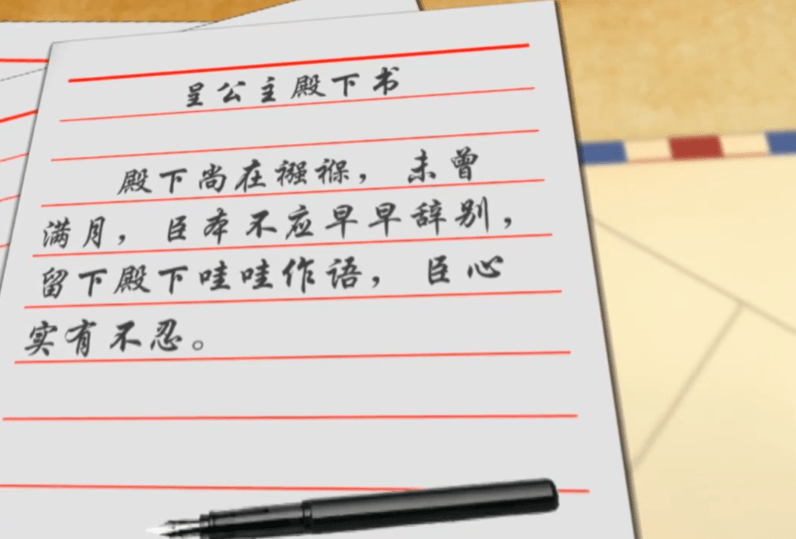 呈公主殿下书
殿下尚在襁褓，未曾
满月，臣本不应早早辞别，
留下殿下哇哇作语，臣心
实有不忍。